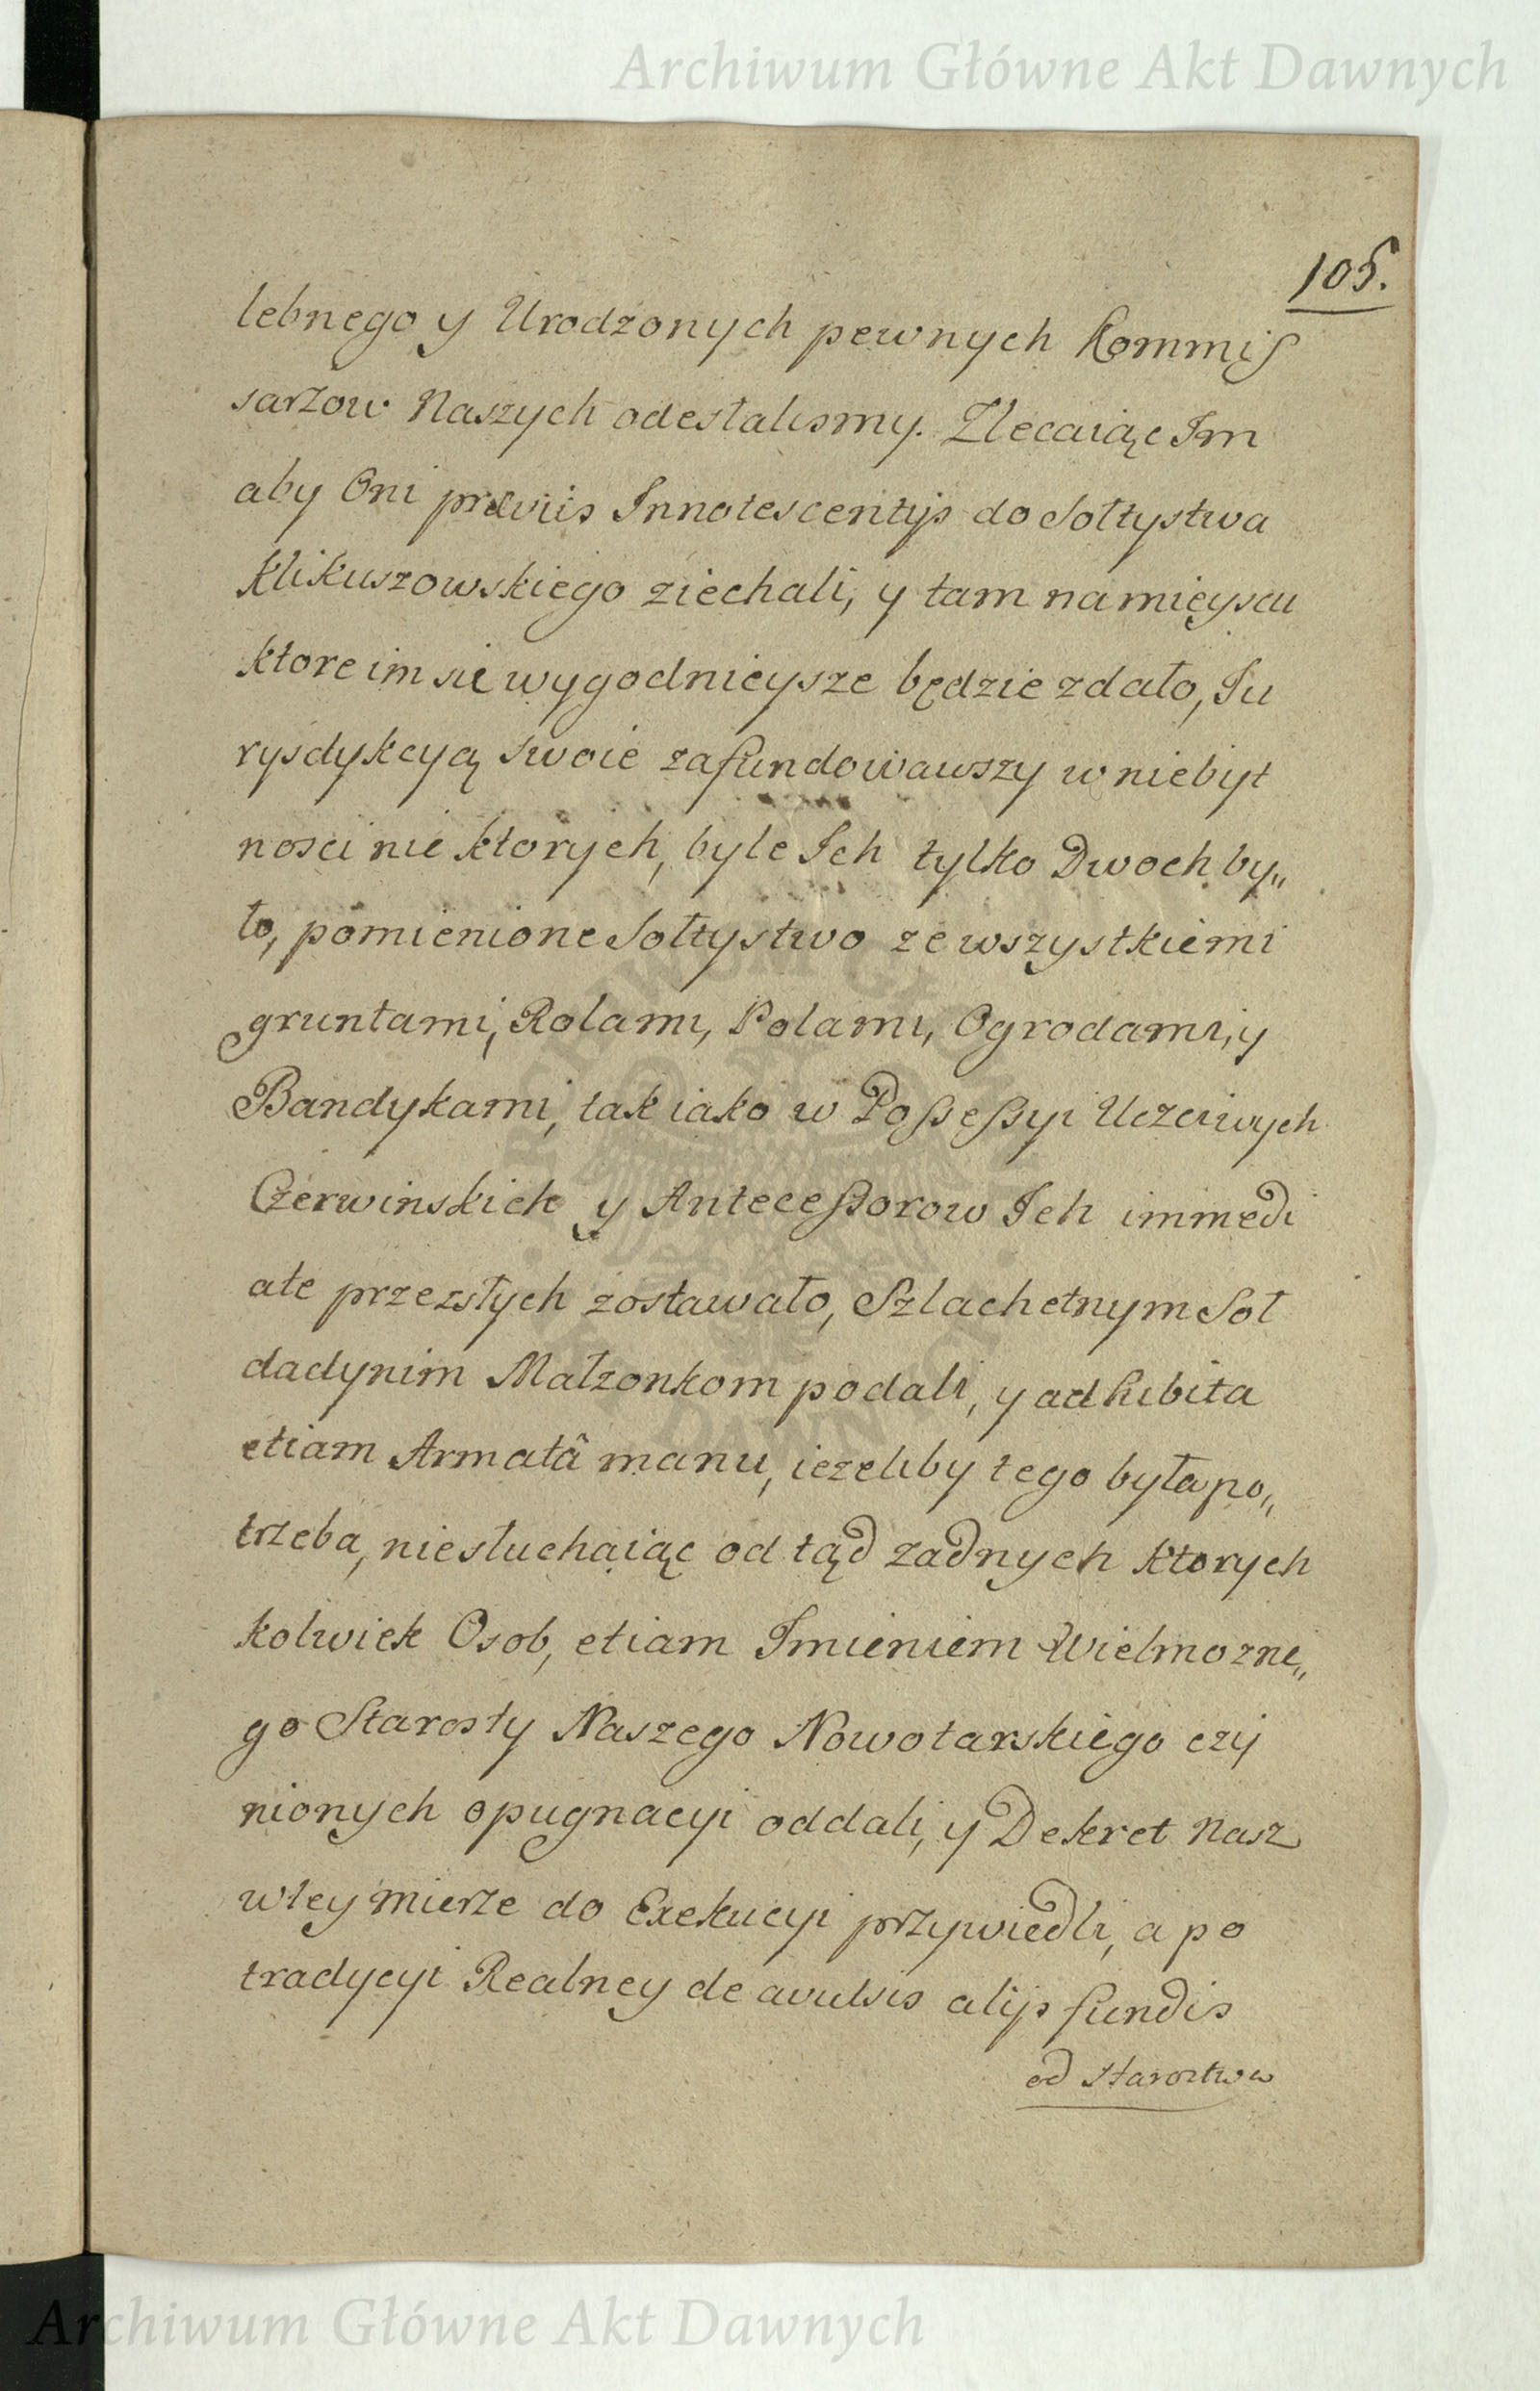 Archiwum Główne Akt Dawnych
105.
lebnego y Urodzonych pewnych Kommis
sarzow Naszych odestalismy. Zlecaiąc Im
aby Oni præviis Innotescentijs do Sołtystwa
Klikuszowskiego ziechali, y tam na mieyscu
ktore im się wygodnieysze będzie zdało, Iu
rysdykcyą swoie zafundowawszy w niebyt
nosci nie ktorych, byle Ich tylko Dwoch by„
ło, pomienione Sołtystwo ze wszystkiemi
gruntami, Rolami, Polami, Ogrodami, y
Bandykami, tak iako w Possessyi Uczciwych
Czerwinskich y Antecessorow Ich immedi
ate przeszłych zostawało, Szlachetnym Sol
dadynim Małzonkom podali, y adhibita
etiam Armatâ manu, iezeliby tego była po„
trzeba, niesłuchaiąc od tąd zadnych ktorych
kolwiek Osob, etiam Imieniem Wielmozne„
go Starosty Naszego Nowotarskiego czy
nionych opugnacyi oddali, y Dekret Nasz
w tey mierze do Exekucyi przywiedli, a po
tradycyi Realney de avulsis alijs fundis
od Starostwa
Archiwum Główne Akt Dawnych